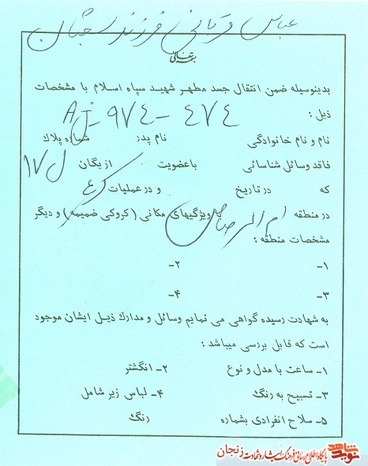 عباس قربانی فرزند سبحان
بسمه تعالی
بدینوسیله ضمن انتقال جسد مطهر شهید سپاه اسلام با مشخصات
ذیل :
AJ-974-474
نام و نام خانوادگی نام پدر شماره پلاك
فاقد وسائل شناسائی باعضویت ازیگان ل ۱۷
که درتاریخ و در عملیات ک ۴
در منطقه ام الرصاص با ویژگیهای مکانی (کروکی ضمیمه) و دیگر
مشخصات منطقه :
۱- ۲-
۳- ۴-
به شهادت رسیده گواهی می نمایم وسائل و مدارك ذیل ایشان موجود
است که قابل بررسی میباشد :
۱- ساعت با مدل و نوع ۲- انگشتر
۳- تسبیح به رنگ ۴- لباس زیر شامل
۵- سلاح انفرادی بشماره رنگ
نوید شاهد
پایگاه اطلاع رسانی فرهنگ ایثار و شهادت زنجان